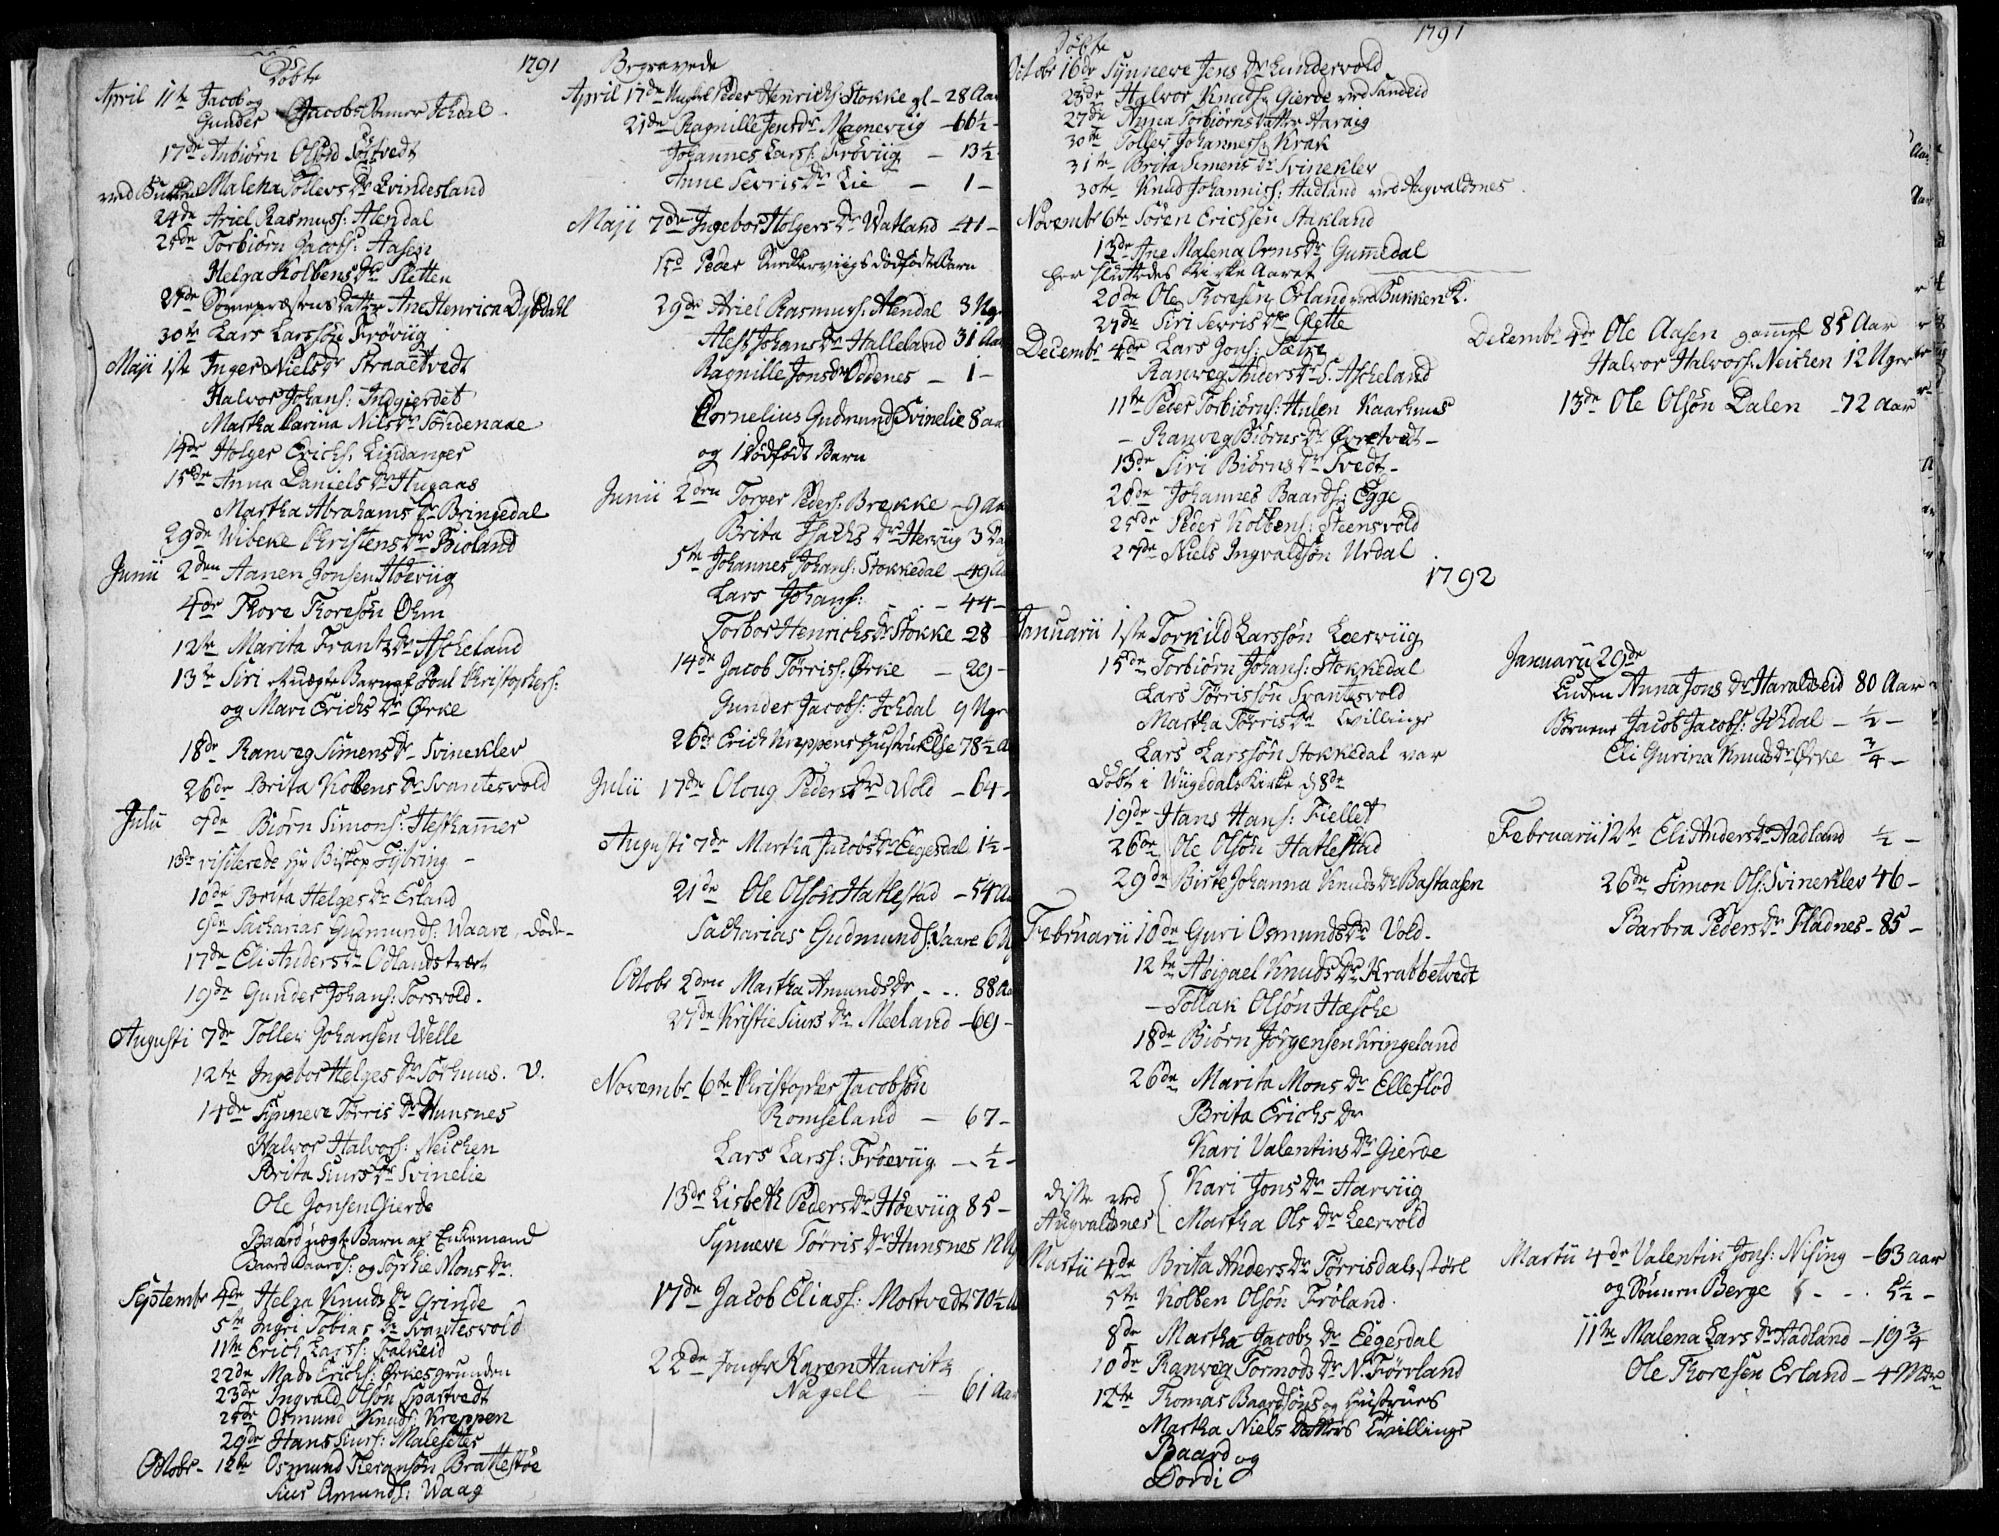 Döbte
1791
April 11te Jacob og
Gunder Jacobs Ichdal
17de Anbiörn Olsön
Malena Tollevs Dr Qvindesland
24de Ariel Rasmuss: Alendal
25de Torbiörn Jacobs: Aasen
Helga Kolbens Dr Sletten
27de Sognepræstens Datter Ane Henrica Dybdahl
30te Lars Larssön Frövig
Maji 1ste Inger Niels Dr Straaetvedt
Halvor Johans: Indgierdet
Martha Carina Nils Dr Söndenaae
14de Holger Erichs: Lindanger
15de Anna Daniels Dr Hugaas
Martha Abrahams Dr Bringedal
29de Wibeke Christens Dr Bioland
Junii 2den Aanen Jonsen Höeviig
4de Thore Thoresön Ohm
12te Marita Frantz Dr Ascheland
13te Siri uægte Barn af Poul Christophers:
og Mari Erichs Dr Örke
18de Ranveg Simens Dr Svinekler
26de Brita Kolbens Dr Svantesvold
Julii Biörn Simons: Hesthamer
13de visiterede Hr Biskop
10de Brita Helges Dr Erland
Sacharias Gudmunds: Waare, döde
17de Eli Anders Dr Odlandstvært
19de Gunder Johans: Torsvold.
Augusti 7de Tollev Johansen Welle
12te Ingebor Helges Dr Sörhuus. V.
14de Synneve Törris Dr Hunsnes
Halvor Halvors: Neichen
Brita Siurs Dr Svinelie
Ole Jonsen Gierde
Baard uægte Barn af Enkemand
Baard Baards: og Sophie Mons Dr.
Septembr 4de Helga Knuds Dr Grinde
5te Ingri Tobias Dr Svantesvold
11te Erich Larss: Falkeid
22de Mads Erichs: Örkesgrunden
23de Ingvald Olsön Spartvedt
25de Osmund Knuds: Kreppen
29de Hans Siurs: Malesetes
Octobr. 12te Osmund Brattestöe
Siur Amunds: Waag
Begravede
April 17de Peder Henrichs: Stokke gl - 28 Aar
21de Ragnille Jens Dr Magneviig - 66½ -
Johannes Larss: Fröviig - 13½
Anne Sevris Dr Lie - 1 -
Maji 7de Ingebor Holgers Dr Watland - 41 -
15d Peder Kirkeviigs dödfödte Barn
29de Ariel Rasmuss: Alendal 3 Uger
Alest Johans Dr Halleland 31 Aar
Ragnille Jons Dr Odenes - 1 -
Cornelius Gudmunds Svinelie 8 aar
og 1 Dödfödt Barn
Junii 2den Torger Peders: Brekke - 9 Aar
Brita Isachs Dr Herviig 3 Dag
5te Johannes Johans: Stokkedal - 49 Aar
Lars Johans: - 44 -
Torbor Henrichs Dr Stokke 28
14de Jacob Törris: Örke - 29 -
Gunder Jacobs: Ichdal 9 Uger
26de Erich Kreppens Hustrue Else 78½ a
Julii 17de Oloug Peders Dr Wold - 64 -
Augusti 7de Martha Jacobs Dr Eegesdal 1½ -
21de Ole Olsön Hatlestad - 54 Aar
Sacharias Gudmunds: Vaare 6 Ug
Octobr 2den Martha Amunds Dr - - . 88 Aar
27de Kristie Siurs Dr Meeland - 69 -
Novembr 6te Christopher Jacobsön
Romseland - 67 -
Lars Larss: Fröeviig - ½ -
13de Lisbeth Peders Dr Höeviig 85 -
Synneve Törris Dr Hunsnes 12 Ug
17de Jacob Eliass: Mostvedt 70½ a
22de Jomfr Karen Hauritz
Nagell 61 Aar
Döbte
1791
Octobr 16de Synneve Jens Dr Lundervold
23de Halvor Knuds: Gierde ved Sandeid
27de Anna Torbiörns datter Aaraig
30te Tollev Johanness: Krak
31te Brita Simens Dr Svinekler
30te Knud Johanniss: Hadland ved Augvaldsnes
Novembr 6te Sören Erichsen Stakland
13de Ane Malena Orms Dr Gumedal
her sluttedes Kirke Aaret
20de Ole Thoresen Erland ved Bukken K.
27de Siri Sevris Dr Slette
Decembr 4de Lars Jons: Sætre
Ranveg Anders Dr S. Ascheland
11te Peder Torbiörns: Hulen Kaarhuus
- Ranveg Biörns Dr Övretvedt -
13de Siri Biörns Dr Tvedt -
20de Johannes Baards: Egge
25de Peder Kolbens: Steensvold
27de Niels Ingvaldsön Urdal.
1792
Januarii 1ste Torkild Larssön Leerviig
15de Torbiörn Johans: Stokkedal
Lars Törrissön Svantesvold
Martha Törris Dr tvillinge
Lars Larssön Stokkedal var
döbt i Wiigedals Kirke d 8de
19de Hans Hans: Fiellet
26de Ole Olsön Hatlestad
29de Birte Johanna Knuds Dr Bastaasen
Februarii 10de Guri Osmunds Dr Vold.
12te Abigael Knuds Dr Krabbetvedt
- Tollak Olsön Hæsche
18de Biörn Jörgensen Kringeland
26de Marita Mons Dr Ellefsöd
Brita Erichs Dr
Kari Valentins Dr Gierde
disse ved
Augvaldsnes
Kari Jons Dr Aarviig
Martha Ols Dr Leervold
Martii 4de Brita Anders Dr Törrisdalsstöel
5te Kolben Olsön Fröland.
8de Martha Jacobs Dr Eegesdal
10de Ranveg Tormods Dr N. Förrland
12te Thomas Baardsöns og Hustrues
Martha Niels Datters tvillinge
Baard og
Dordi
Decembr 4de Ole Aasen gamel 85 Aar
Halvor Halvors: Neichen 12 Uger
13de Ole Olsön Dalen - 72 Aar
Januarii 29de
Enken Anna Jons Dr Haraldseid 80 Aar
Börnene Jacob Jacobs: Ichdal - ½ -
Eli Gurina Knuds Dr Örke ¾ -
Februarii 12te Eli Anders Dr Hadland ½ -
26de Simon Ols: Svinekler 46 -
Barbra Peders Dr Fladnes - 85 -
Martii 4de Valentin Jons: Nising - 63 aar
og Sönnen Berge - - . 5½ -
11te Malena Lars Dr Hadland - 19¾
Ole Thoresen Erland - 4 Mdr